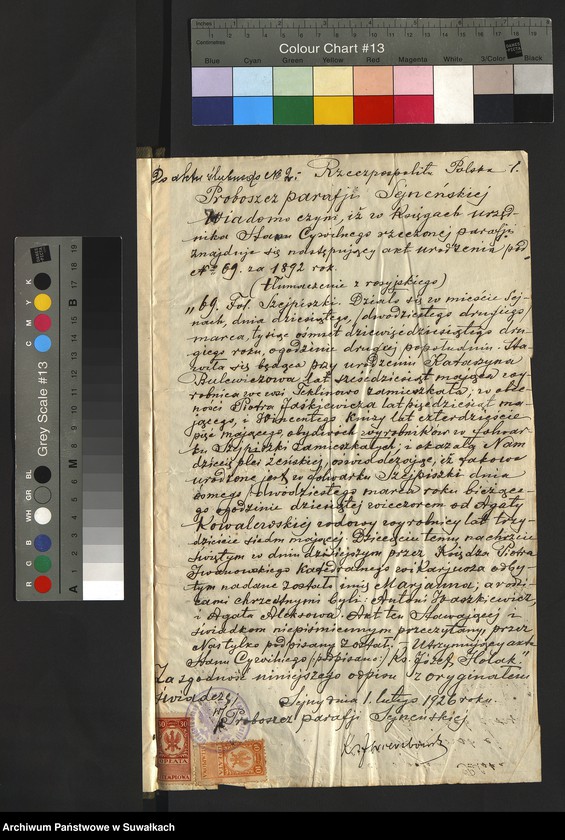 Colour Chart #13
Blue Cyan Green Yellow Red Magenta White 3/Color Black
Inches
Centimetres
Grey Scale #13
Do aktu ślubnego No 2: Rzeczpospolita Polska 1.
Proboszcz parafji Sejneńskiej
Wiadomo czyni, iż w Księgach urzęd-
nika Stanu Cywilnego rzeczonej parafji
znajduje się następujący akt urodzenia pod
No 69. za 1892 rok.
(tłumaczenie z rosyjskiego)
"69. Fol. Szejpiszki. Działo się w mieście Sej-
nach, dnia dziesiątego /dwudziestego drugiego/
marca, tysiąc ośmset dziewięćdziesiątego dru-
giego roku, o godzinie drugiej popołudniu. Sta-
wiła się będąca przy urodzeniu Katarzyna
Bulewiczowa lat sześćdziesiąt mająca wy-
robnica we wsi Teklinowo zamieszkała; w obec-
ności Piotra Jaśkiewicza lat pięćdziesiąt ma-
jącego, i Wincentego lat czterdzieście
pięć mającego obydwóch wyrobników w folwar-
ku Szejpiszki zamieszkałych, i okazała Nam
dziecię płci żeńskiej, oświadczając, iż takowe
urodzone jest w folwarku Szejpiszki dnia
ósmego /dwudziestego marca roku bieżące-
go o godzinie dziesiątej wieczorem od Agaty
Kowalewskiej wdowy wyrobnicy lat trzy-
dzieście siedm mającej. Dziecięciu temu na chrzcie
świętym w dniu dzisiejszym przez Księdza Piotra
Iwanowskiego Katedralnego wikarjusza odby-
tym nadane zostało imię Marjanna, a rodzi-
cami chrzestnymi byli: Antoni Iwaszkiewicz,
i Agata Aleksowa. Akt ten stawającej i
świadkom niepiśmiennym przeczytany, przez
Nas tylko podpisany został. Utrzymujący akta
Stanu Cywilnego /podpisano/ Ks. Józef Hołak"
Za zgodność niniejszego odpisu z oryginałem
świadczę/
Sejny dnia 1. lutego 1926 roku.
Proboszcz parafji Sejneńskiej
30 30
OPŁATA
STEMPLOWA
Archiwum Państwowe w Suwałkach